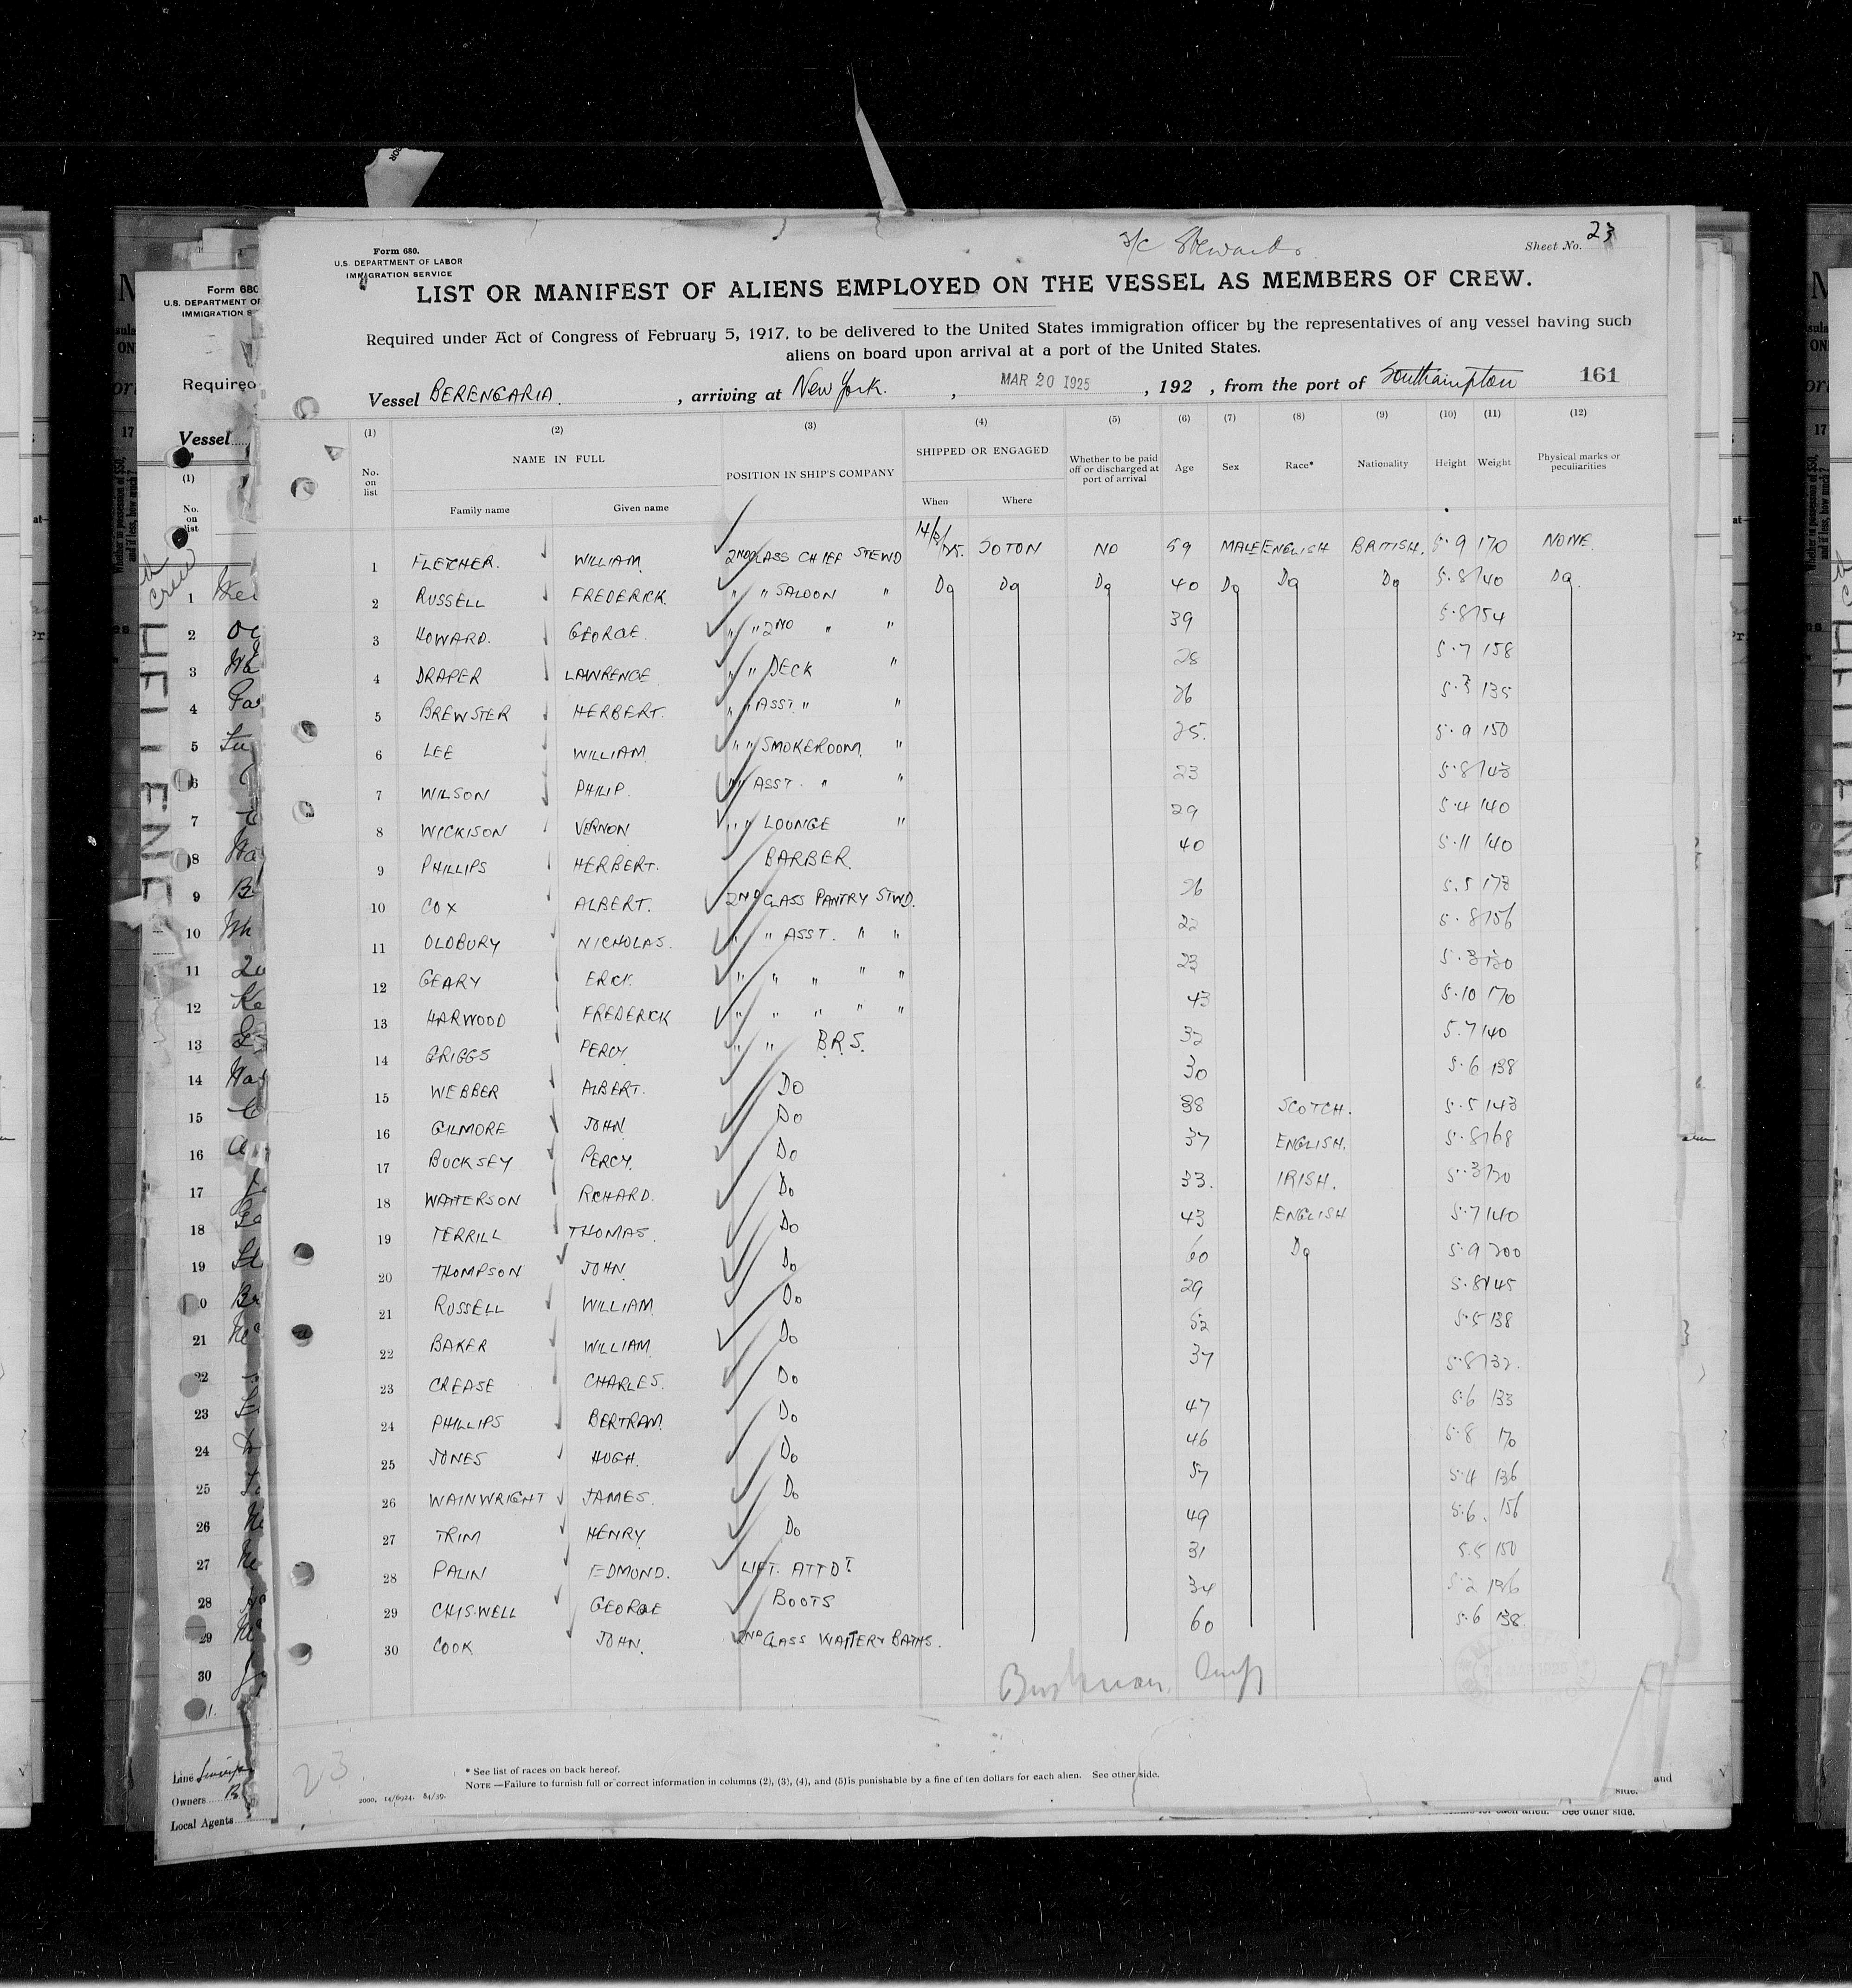 2/c Stewards
Sheet No. 23
Form 680.
U.S. DEPARTMENT OF LABOR
IMMIGRATION SERVICE
LIST OR MANIFEST OF ALIENS EMPLOYED ON THE VESSEL AS MEMBERS OF CREW.
Required under Act of Congress of February 5, 1917, to be delivered to the United States immigration officer by the representatives of any vessel having such
aliens on board upon arrival at a port of the United States.
Vessel BERENGARIA , arriving at New York. , MAR 20 1925 , 192 , from the port of Southampton 161
(1) (2) (3) (4) (5) (6) (7) (8) (9) (10) (11) (12)
No. on list NAME IN FULL POSITION IN SHIP'S COMPANY SHIPPED OR ENGAGED Whether to be paid off or discharged at port of arrival Age Sex Race* Nationality Height Weight Physical marks or peculiarities
Family name Given name When Where
1 FLETCHER. WILLIAM 2ND CLASS CHIEF STEWD 14/3/25. SOTON NO 59 MALE ENGLISH BRITISH. 5.9 170 NONE.
2 RUSSELL FREDERICK. " " SALOON " Do Do Do 40 Do Do Do 5.8 140 Do.
3 HOWARD. GEORGE. " " 2ND " " 39 5.8 154
4 DRAPER LAWRENCE " " DECK " 28 5.7 158
5 BREWSTER HERBERT. " " ASST. " " 26 5.3 135
6 LEE WILLIAM " " SMOKEROOM. " 25. 5.9 150
7 WILSON PHILIP. " " ASST. " " 23 5.8 143
8 WICKISON VERNON " " LOUNGE " 29 5.4 140
9 PHILLIPS HERBERT. BARBER. 40 5.11 140
10 COX ALBERT. 2ND CLASS PANTRY STWD. 26 5.5 178
11 OLDBURY NICHOLAS. " " ASST. " " 22 5.8 156
12 GEARY ERIC. " " " " " 23 5.3 130
13 HARWOOD FREDERICK " " " " " 43 5.10 170
14 GRIGGS PERCY " " B.R.S. 32 5.7 140
15 WEBBER ALBERT. Do 30 5.6 138
16 GILMORE JOHN Do 38 SCOTCH. 5.5 143
17 BUCKSEY PERCY. Do 37 ENGLISH. 5.8 168
18 WATTERSON RICHARD. Do 33. IRISH. 5.3 120
19 TERRILL THOMAS. Do 43 ENGLISH 5.7 140
20 THOMPSON JOHN Do 60 Do 5.9 200
21 RUSSELL WILLIAM Do 29 5.8 145
22 BAKER WILLIAM Do 52 5.5 138
23 CREASE CHARLES. Do 37 5.8 132.
24 PHILLIPS BERTRAM. Do 47 5.6 133
25 JONES HUGH. Do 46 5.8 170
26 WAINWRIGHT JAMES. Do 57 5.4 136
27 TRIM HENRY Do 49 5.6. 156
28 PALIN EDMOND. LIFT. ATTDT. 31 5.5 150
29 CHISWELL GEORGE BOOTS 34 5.2 126
30 COOK JOHN. 2ND CLASS WAITER BATHS. 60 5.6 138
23
* See list of races on back hereof.
NOTE.—Failure to furnish full or correct information in columns (2), (3), (4), and (5) is punishable by a fine of ten dollars for each alien. See other side.
2000, 14/6924. 84/39.
Form 680
U.S. DEPARTMENT OF
IMMIGRATION S
Required
Vessel
(1)
No. on list
Line
Owners
Local Agents
and
side.
See other side.